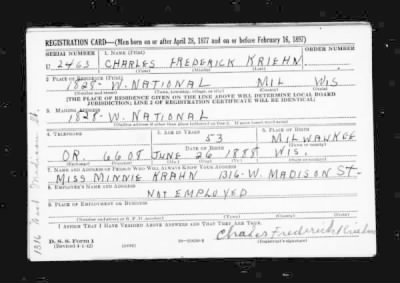 REGISTRATION CARD—(Men born on or after April 28, 1877 and on or before February 16, 1897)
SERIAL NUMBER 1. NAME (Print) ORDER NUMBER
U 2463 CHARLES FREDERICK KRIEHN
(First) (Middle) (Last)
2. PLACE OF RESIDENCE (Print)
1828- W. NATIONAL MIL WIS
(Number and street) (Town, township, village, or city) (County) (State)
[THE PLACE OF RESIDENCE GIVEN ON THE LINE ABOVE WILL DETERMINE LOCAL BOARD
JURISDICTION; LINE 2 OF REGISTRATION CERTIFICATE WILL BE IDENTICAL]
3. MAILING ADDRESS
1828- W. NATIONAL
[Mailing address if other than place indicated on line 2. If same insert word same]
4. TELEPHONE 5. AGE IN YEARS 6. PLACE OF BIRTH
53 MILWAUKEE
DATE OF BIRTH (Town or county)
OR. 6608 JUNE 26 1888 WIS.
(Exchange) (Number) (Mo.) (Day) (Yr.) (State or country)
7. NAME AND ADDRESS OF PERSON WHO WILL ALWAYS KNOW YOUR ADDRESS
MISS MINNIE KRAHN 1316- W. MADISON ST-
8. EMPLOYER'S NAME AND ADDRESS
NOT EMPLOYED
9. PLACE OF EMPLOYMENT OR BUSINESS
(Number and street or R. F. D. number) (Town) (County) (State)
I AFFIRM THAT I HAVE VERIFIED ABOVE ANSWERS AND THAT THEY ARE TRUE.
D. S. S. Form 1 Charles Frederick Kriehn
(Revised 4-1-42) (over) (Registrant's signature)
1316 West Madison St.